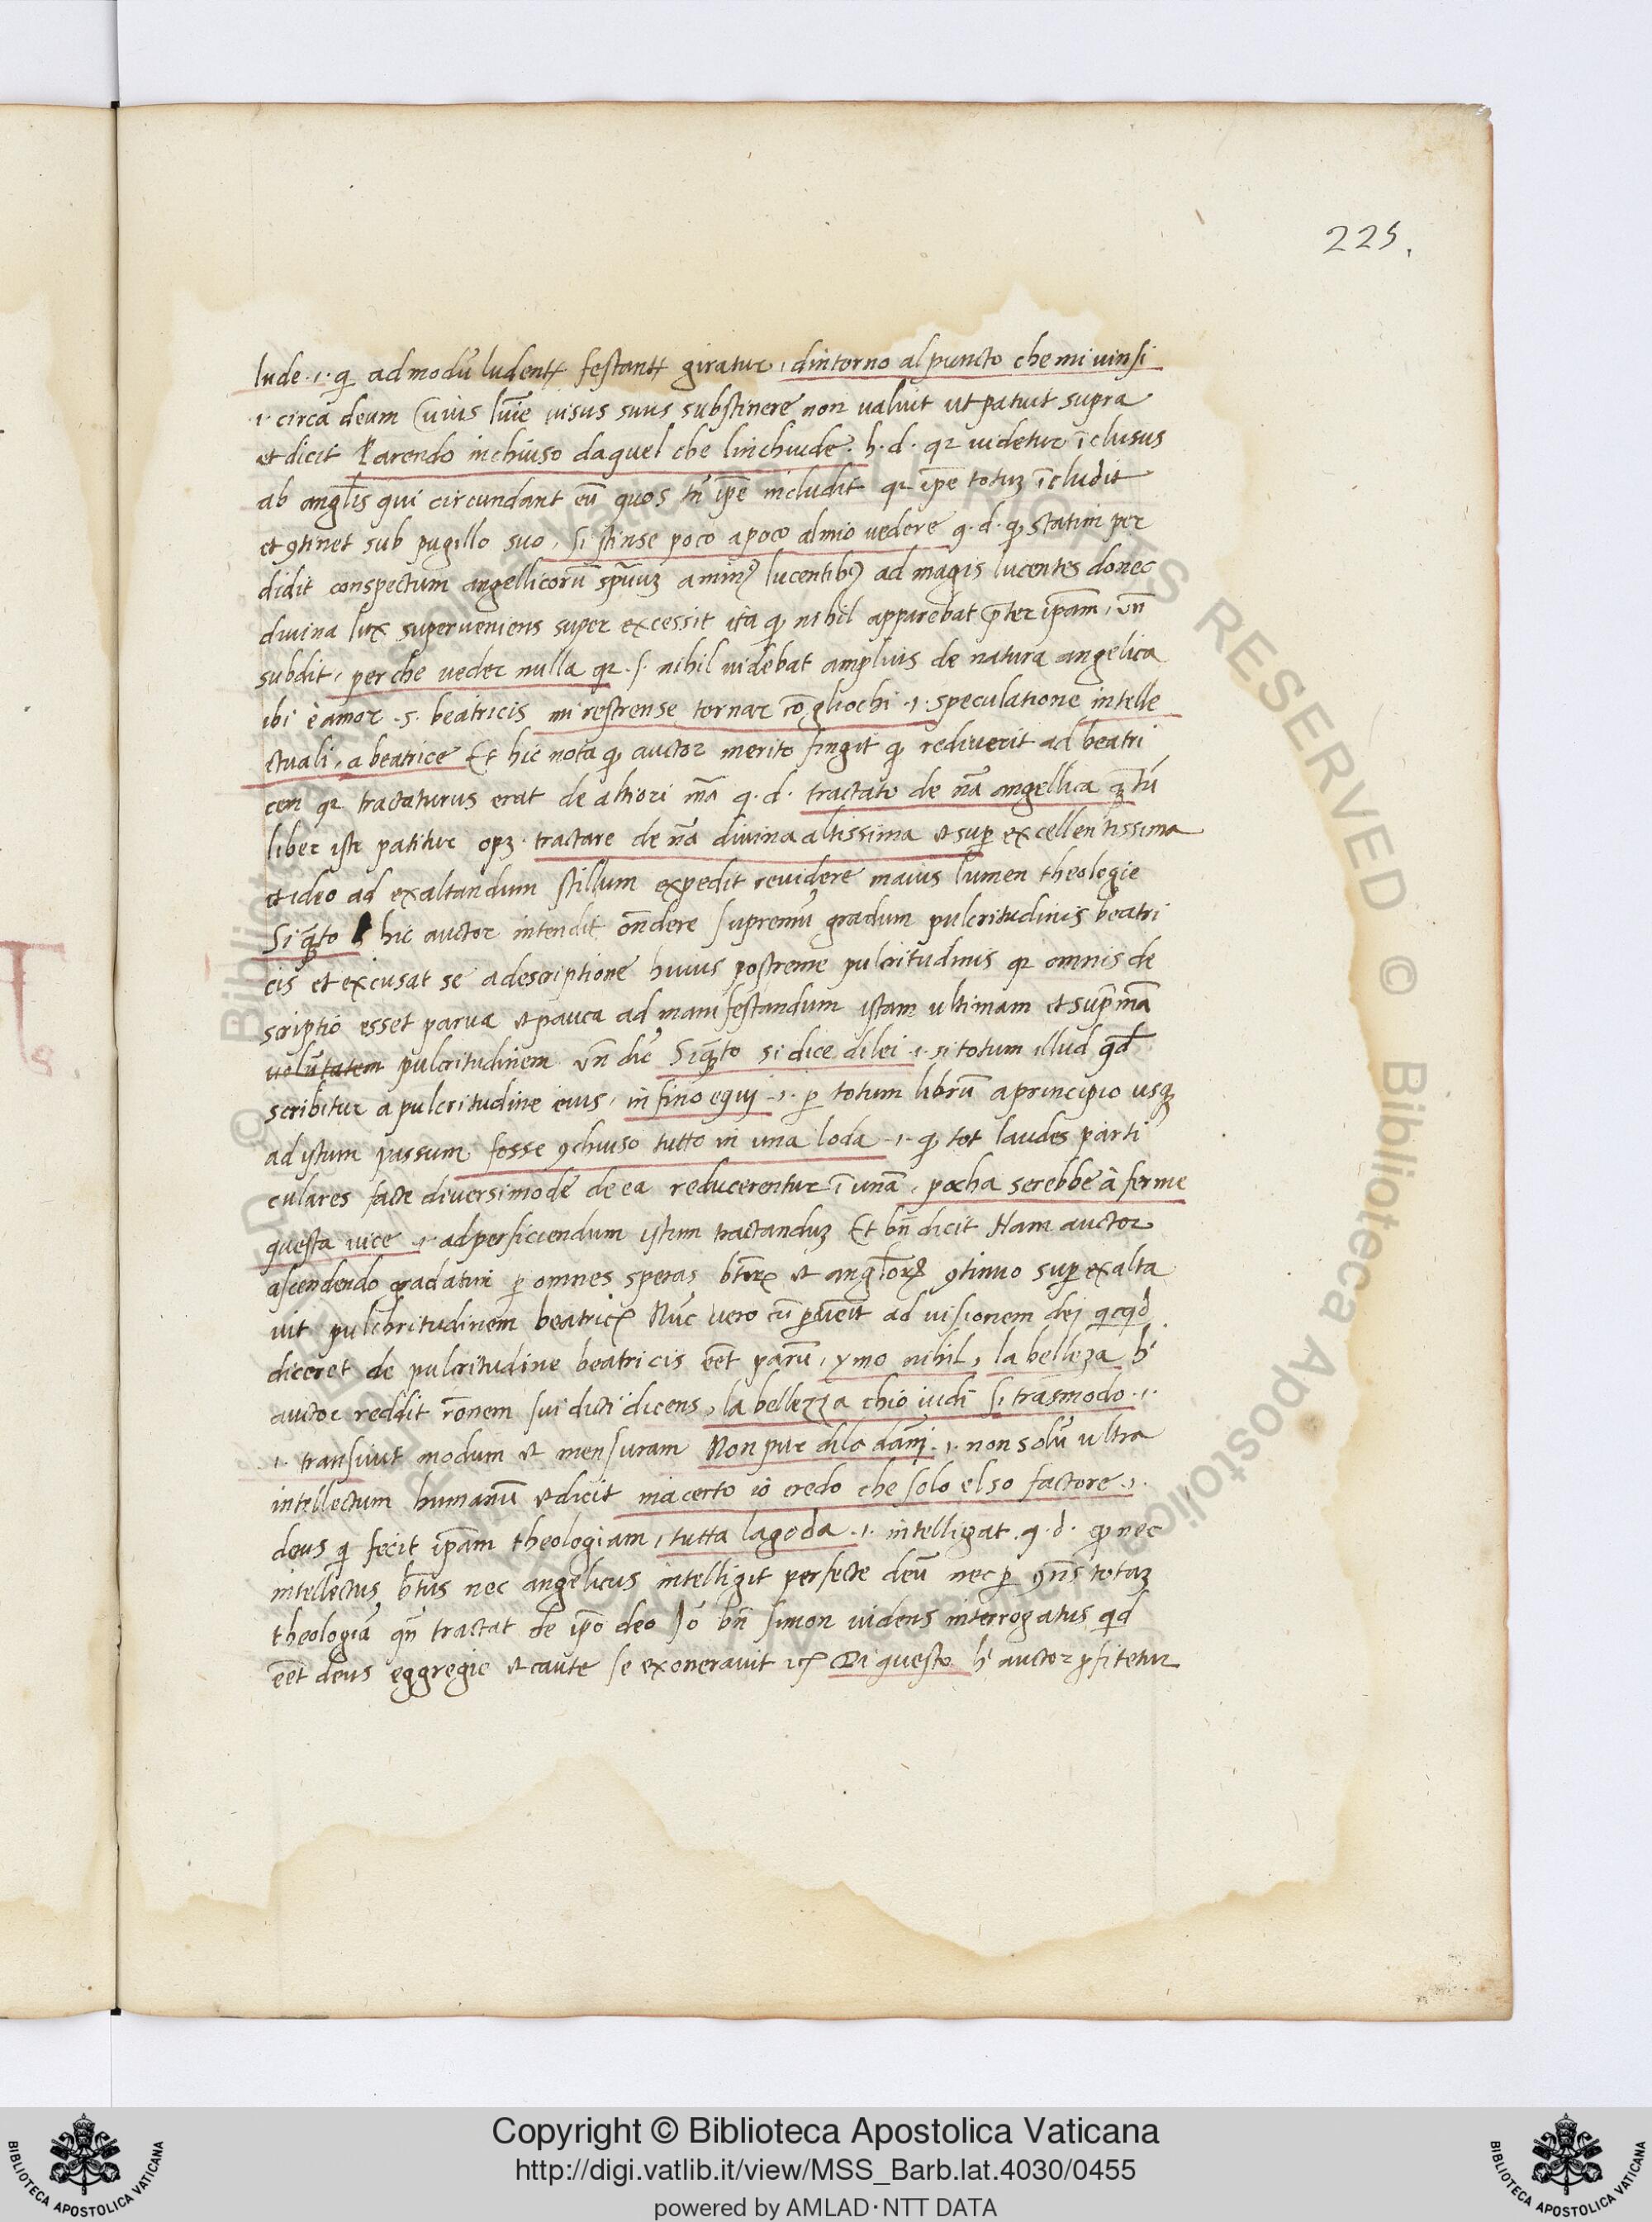 225.
lude .i. qi admodū ludent festant giratur, dintorno al puncto che mi uinsi
.i. circa deum cuius lūie uisus suus substinere non ualuit ut patuit supra
et dicit Parendo inchiuso daquel che linchiude. h.d. qr uidetur īclusus
ab anglis qui circundant eū quos tn̄ ip̄e includit qr ip̄e totuz īcludit
et 9tinet sub pugillo suo, si stinse poco apoco al mio uedere q.d. q statim per
didit conspectum angellicorū sp̄uuz a min9 lucentib9 ad magis lucentes donec
diuina lux superueniens super excessit ita q nihil apparebat p̄ter ip̄am, vn̄
subdit, perche ueder nulla qr .s. nihil uidebat amplius de natura angelica
ibi è amor .s. beatricis mi restrense tornar cō gliochi .i. speculatione intelle
ctuali, a beatrice Et hic nota q auctor merito fingit q rediuerit ad beatri
cem qr tractaturus erat de altiori mā q.d. tractato de nā angellica q̄tū
liber iste patitur opz. tractare de nā diuina altissima et sup excellentissima
et ideo ad exaltandum stillum expedit reuidere maius lumen theologie
Si q̄to hic auctor intendit ōndere supremū gradum pulcritudinis beatri
cis et excusat se a descriptione huius postreme pulcritudinis qr omnis de
scriptio esset parua et pauca ad manifestandum istam ultimam et sup̄mā
uolūtatem pulcritudinem vn̄ dic̄ Si q̄to si dice di lei .i. si totum illud qd
scribitur a pulcritudine eius, in fino equi .i. p totum librū a principio usq
ad istum passum fosse 9chiuso tutto in una loda .i. q tot laudes parti
culares facte diuersimode de ea reducerentur ī unā, pocha serebbe à ferme
questa uice .i. ad perficiendum istum tractanduz Et bn̄ dicit Nam auctor
ascendendo gradatim p omnes speras btor et angelor 9tinuo sup exalta
uit pulchritudinem beatric Nūc uero cū puēit ad uisionem dei qcqd
diceret de pulcritudine beatricis eēt parū, ymo nihil, la belleza h
auctor reddit rōnem sui dicti dicens, la bellezza chio uidi si trasmodo .i.
.i. transiuit modum et mensuram Non pur dila dāni .i. non solū ultra
intellectum humanū et dicit ma certo io credo che solo el so factore .i.
deus qi fecit ip̄am theologiam, tutta la goda .i. intelligat q.d. q nec
intellectus btus nec angelicus intelligit perfecte deū nec p 9ns totaz
theologiā qn̄ tractat de ip̄o deo Jō bn̄ simon uidens interrogatus qd
eēt deus eggregie et caute se exonerauit ic Di questo h auctor pfitetur
Copyright © Biblioteca Apostolica Vaticana
http://digi.vatlib.it/view/MSS_Barb.lat.4030/0455
powered by AMLAD·NTT DATA
BIBLIOTECA APOSTOLICA VATICANA
BIBLIOTECA APOSTOLICA VATICANA